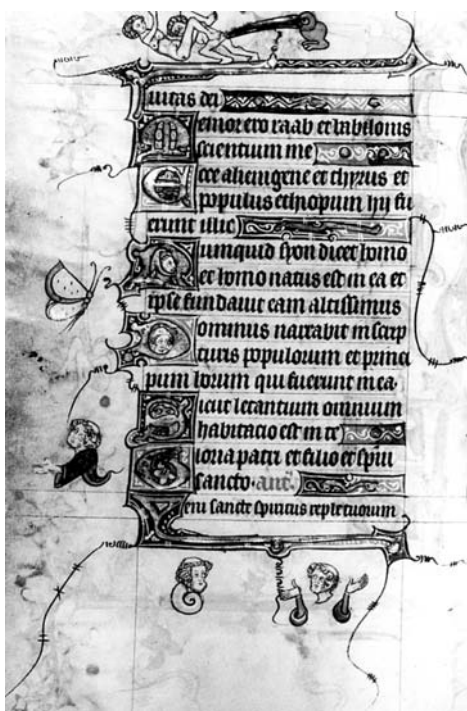 uitas dei
Memor ero raab et babilonis
scientium me
Ecce alienigene et thyrus et
populus ethiopum hii fu
erunt illic
Nunquid syon dicet homo
et homo natus est in ea et
ipse fundavit eam altissimus
Dominus narrabit in scrip
turis populorum et princi
pum horum qui fuerunt in ea.
Sicut letantium omnium
habitacio est in te
Gloria patri et filio et spiri
sancto. ant.
Veni sancte spiritus reple tuorum